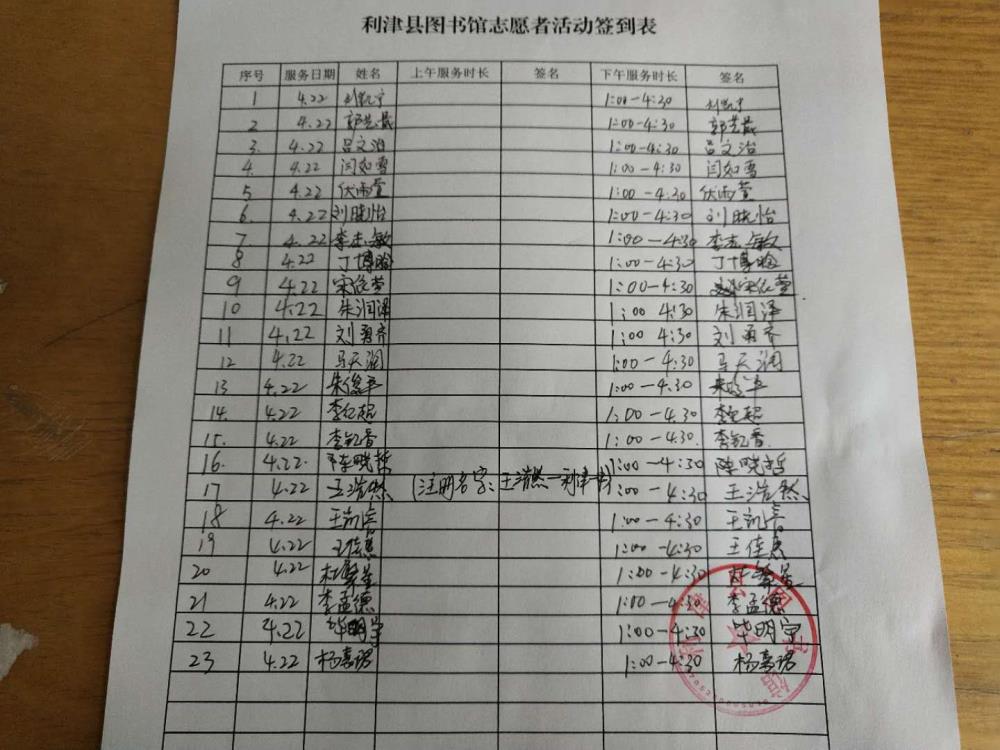 利津县图书馆志愿者活动签到表
序号 服务日期 姓名 上午服务时长 签名 下午服务时长 签名
1 4.22 刘凯宁 1:00-4:30 刘凯宁
2 4.22 郭艺晨 1:00-4:30 郭艺晨
3. 4.22 吕文治 1:00-4:30 吕文治
4. 4.22 闫如雪 1:00-4:30 闫如雪
5 4.22 伏雨萱 1:00-4:30 伏雨萱
6. 4.22 刘晓怡 1:00-4:30 刘晓怡
7. 4.22 李志敏 1:00-4:30 李志敏
8 4.22 丁博 1:00-4:30 丁博
9 4.22 宋依萱 1:00-4:30 宋依萱
10 4.22 朱润泽 1:00 4:30 朱润泽
11 4.22 刘勇齐 1:00 4:30 刘勇齐
12 4.22 马天润 1:00-4:30 马天润
13 4.22 朱俊平 1:00-4.30 平
14. 4.22 李纪超 1:00-4.30 李超
15. 4.22 李香 1:00-4:30. 李香
16. 4.22. 陈晓哲 1:00-4:30 陈晓哲
17 4.22 王浩然 (注册名字:王浩然-利津一 1:00-4:30 王浩然
18 4.22 王凯 1:00-4:30 王凯
19 4.22 王佳惠 1:00-4:30 王佳惠
20 4.22 杜馨星 1:00-4:30 杜馨星
21 4.22 李孟德 1:00-4:30 李孟德
22 4.22 毕明宇 1:00-4:30 毕明宇
23 4.22 杨嘉珺 1:00-4:30 杨嘉珺